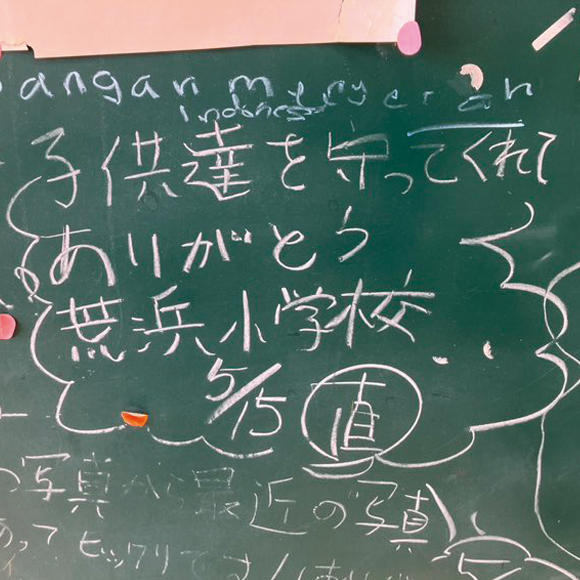 angan menyerah
Indonesia
子供達を守ってくれて
ありがとう
荒浜小学校
5/15 直
写真から最近の写真
あって ビックリです